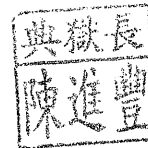 典獄長
陳進豐